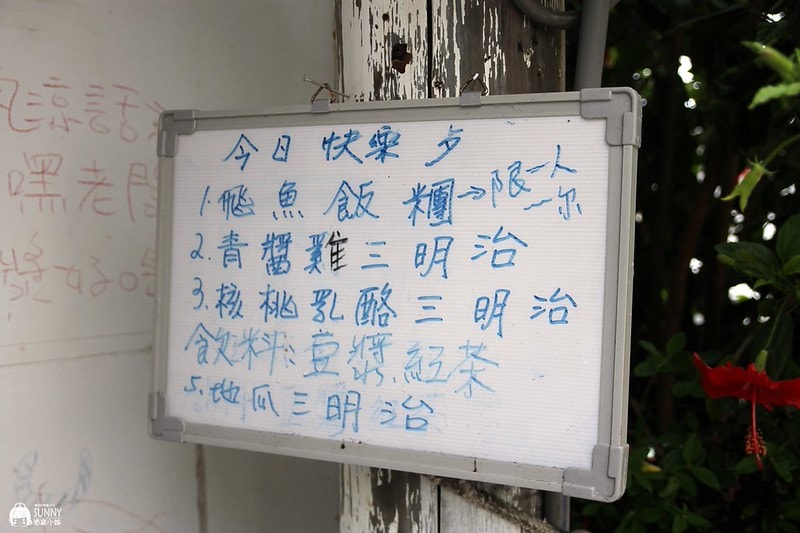 今日快樂夕
1.飛魚飯糰→限一人一尔
2.青醬雞三明治
3.核桃乳酪三明治
飲料:豆漿.紅茶
5.地瓜三明治
涼話
嘿老闆
漿好喝
SUNNY